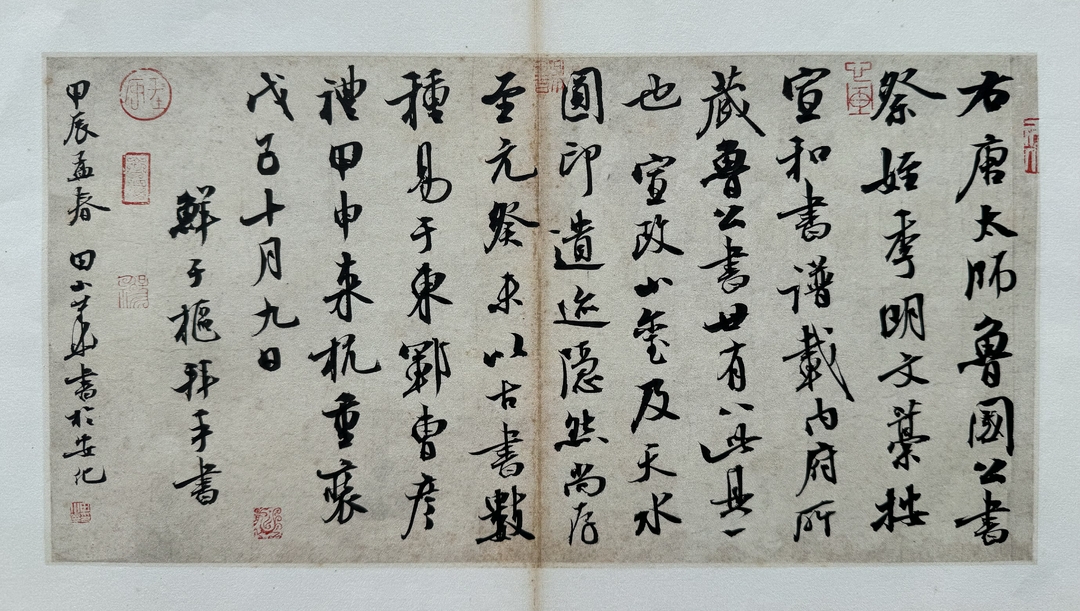 右唐太师鲁國公書
祭姪季明文藁按
宣和書譜載内府所
蔵鲁公書廿有八此其一
也 宣政小璽及天水
圓印遺迹隠然尚存
至元癸未以古書數
種易于東鄆曹彦
禮甲申来杭重裝
戊子十月九日
鮮于樞拜手書
甲辰孟春 田小華書於安化